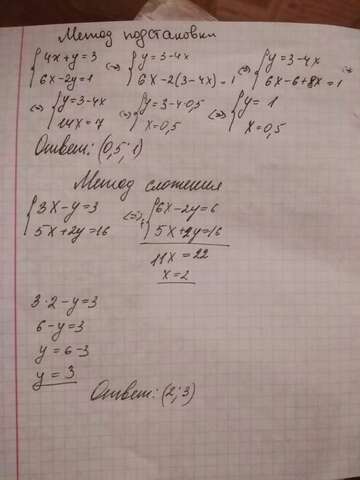 Метод подстановки
{4x+y=3 {y=3-4x {y=3-4x
{6x-2y=1 <=> {6x-2(3-4x)=1 <=> {6x-6+8x=1 <=>
<=> {y=3-4x <=> {y=3-4·0,5 <=> {y=1
{14x=7 {x=0,5 {x=0,5
Ответ: (0,5; 1)
Метод сложения
{3x-y=3 <=> {6x-2y=6
{5x+2y=16 + {5x+2y=16
11x=22
x=2
3·2-y=3
6-y=3
y=6-3
y=3
Ответ: (2; 3)